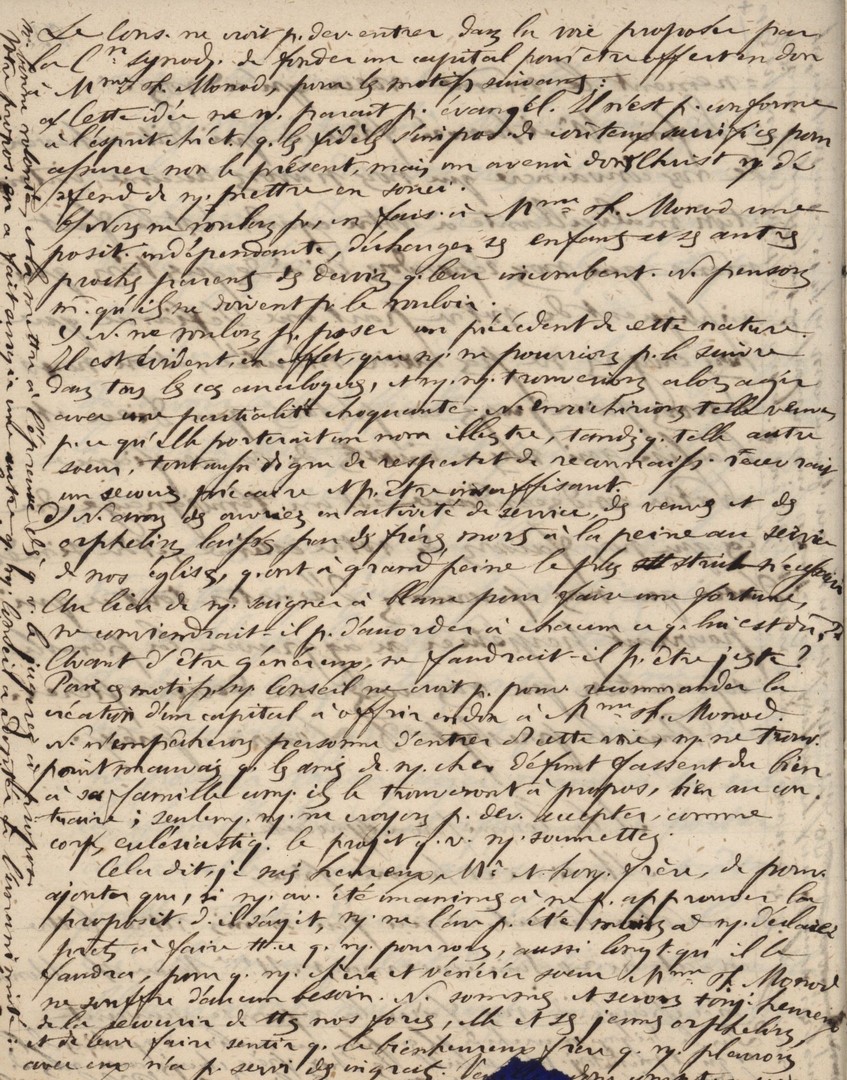 Le Cons. ne croit p. dev. entrer dans la voie proposée par
la Cn synod. de fonder un capital pour être offert en don
à Mme A. Monod, pour les motifs suivans:
a) Cette idée ne n. parait p. évangél. Il n'est p. conforme
à l'esprit chrét. q. les fidèles s'impos. de coûteux sacrifices pour
assurer non le présent, mais un avenir dont Christ n. dé
défend de n. mettre en souci.
b) Nous ne voulons p., en fais. à Mme A. Monod une
posit. indépendante, décharger ses enfans et ses autres
proches parens des devoirs q. leur incombent. N. pensons
m. qu'ils ne doivent p. le vouloir.
c) N. ne voulons p. poser un précédent de cette nature.
Il est évident, en effet, que n. ne pourrions p. le suivre
dans tous les cas analogues, et n. n. trouverions alors agir
avec une partialité choquante. N. enrichirions telle veuve,
p. ce qu'elle porterait un nom illustre, tandis q. telle autre
soeur, tout aussi digne de respect et de reconnaiss. recevrait
un secours précaire et p. être insuffisant.
d) N. avons des ouvriers en activité de service, des veuves et des
orphelins laissés par des frères morts à la peine au service
de nos églises, q. ont à grand peine le plus strict nécessaire
Au lieu de n. saigner à blanc pour faire une fortune,
ne conviendrait-il p. d'accorder à chacun ce q. lui est dû?
Avant d'être généreux, ne faudrait-il p. être juste?
Par ces motifs, n. Conseil ne croit p. pouv. recommander la
création d'un capital à offrir en don à Mme A. Monod.
N. n'empêcherons personne d'entrer d. cette voie, n. ne trouv.
point mauvais q. les amis de n. cher défunt fassent du bien
à sa famille comm. ils le trouveront à propos, bien au con-
traire; seulem. n. ne croyons p. dev. accepter, comme
corps ecclésiastiq. le projet q. v. n. soumettez.
Cela dit, je suis heureux, Mr et hon. frère, de pouv.
ajouter que, si n. av. été unanimes à ne p. approuver la
proposit. d. il s'agit, n. ne l'av. p. été moins à n. déclarer
prêts à faire tt ce q. n. pourrons, aussi longt. qu'il le
faudra, pour q. n. chère et vénérée soeur Mme A. Monod
ne souffre d'aucun besoin. N. sommes et serons touj. heureux
de la secourir de ttes nos forces, elle et ses jeunes orphelins,
et de leur faire sentir q. le bienheureux frère q. n. pleurons
avec eux n'a p. servi des ingrats.
bonne volonté, et la mettre à l'épreuve dès q. v. le jugerez à propos